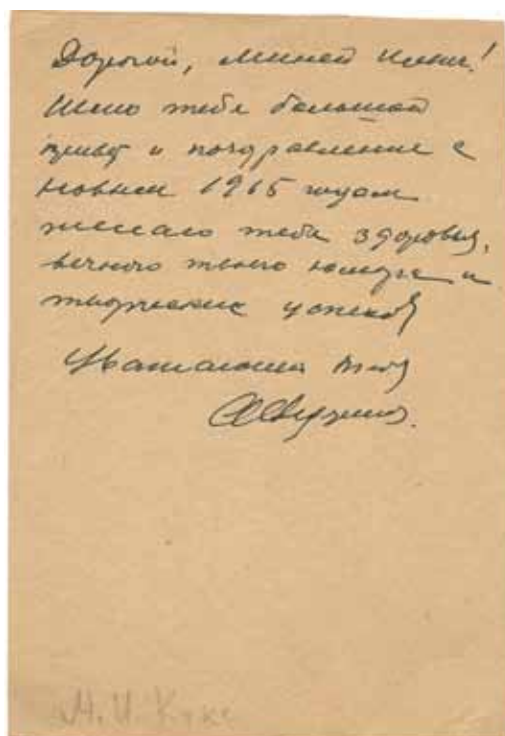 Дорогой, Миней Ильич!
Шлю тебе большой
привет и поздравление с
новым 1965 годом
желаю тебе здоровья,
вечного твоего юмора и
творческих успехов
Уважающий тебя
М. И. Кукс